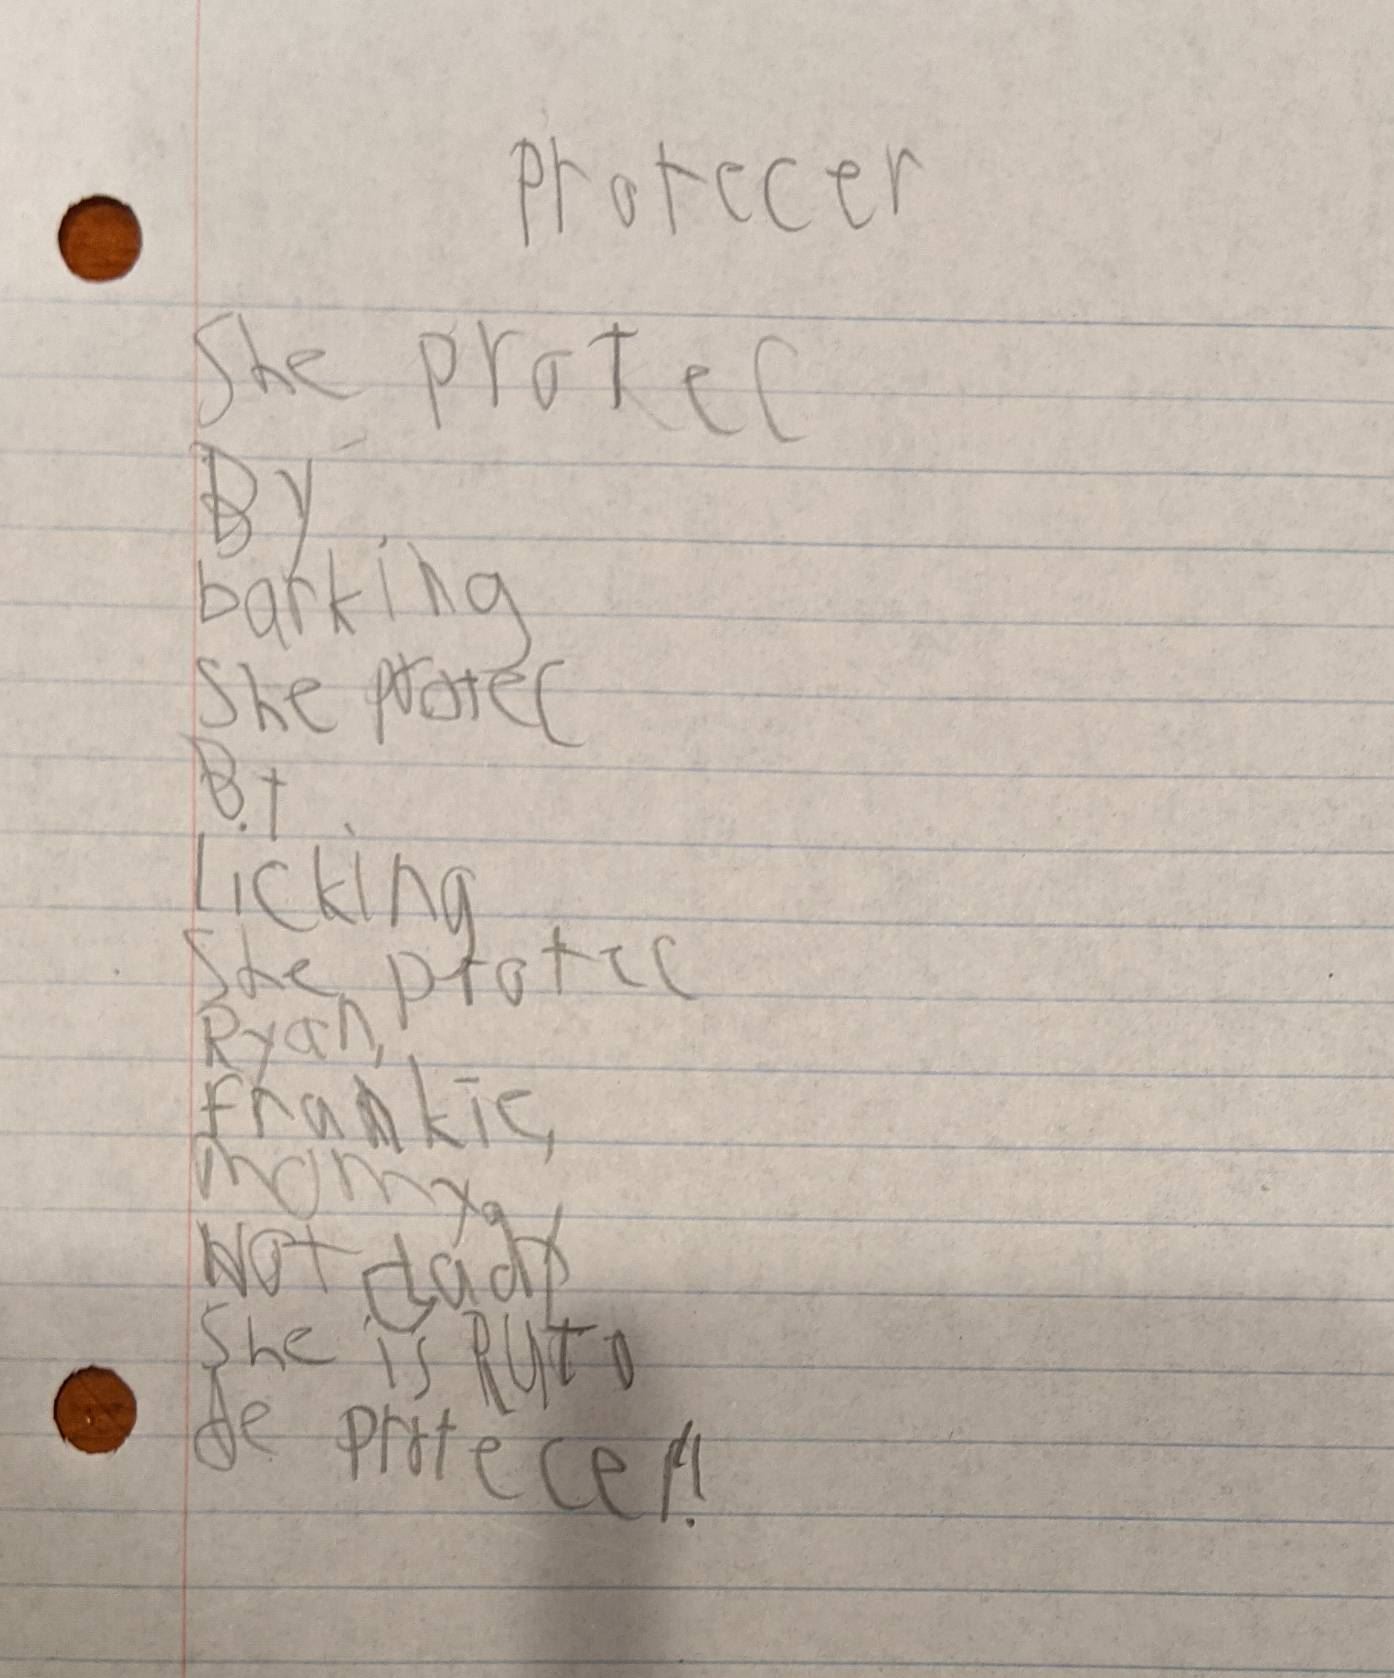 Protecer
She protec
By
barking
She protec
By
Licking
She protec
Ryan,
frankie,
momy,
Not dady
She is Ruto
de protecer!!